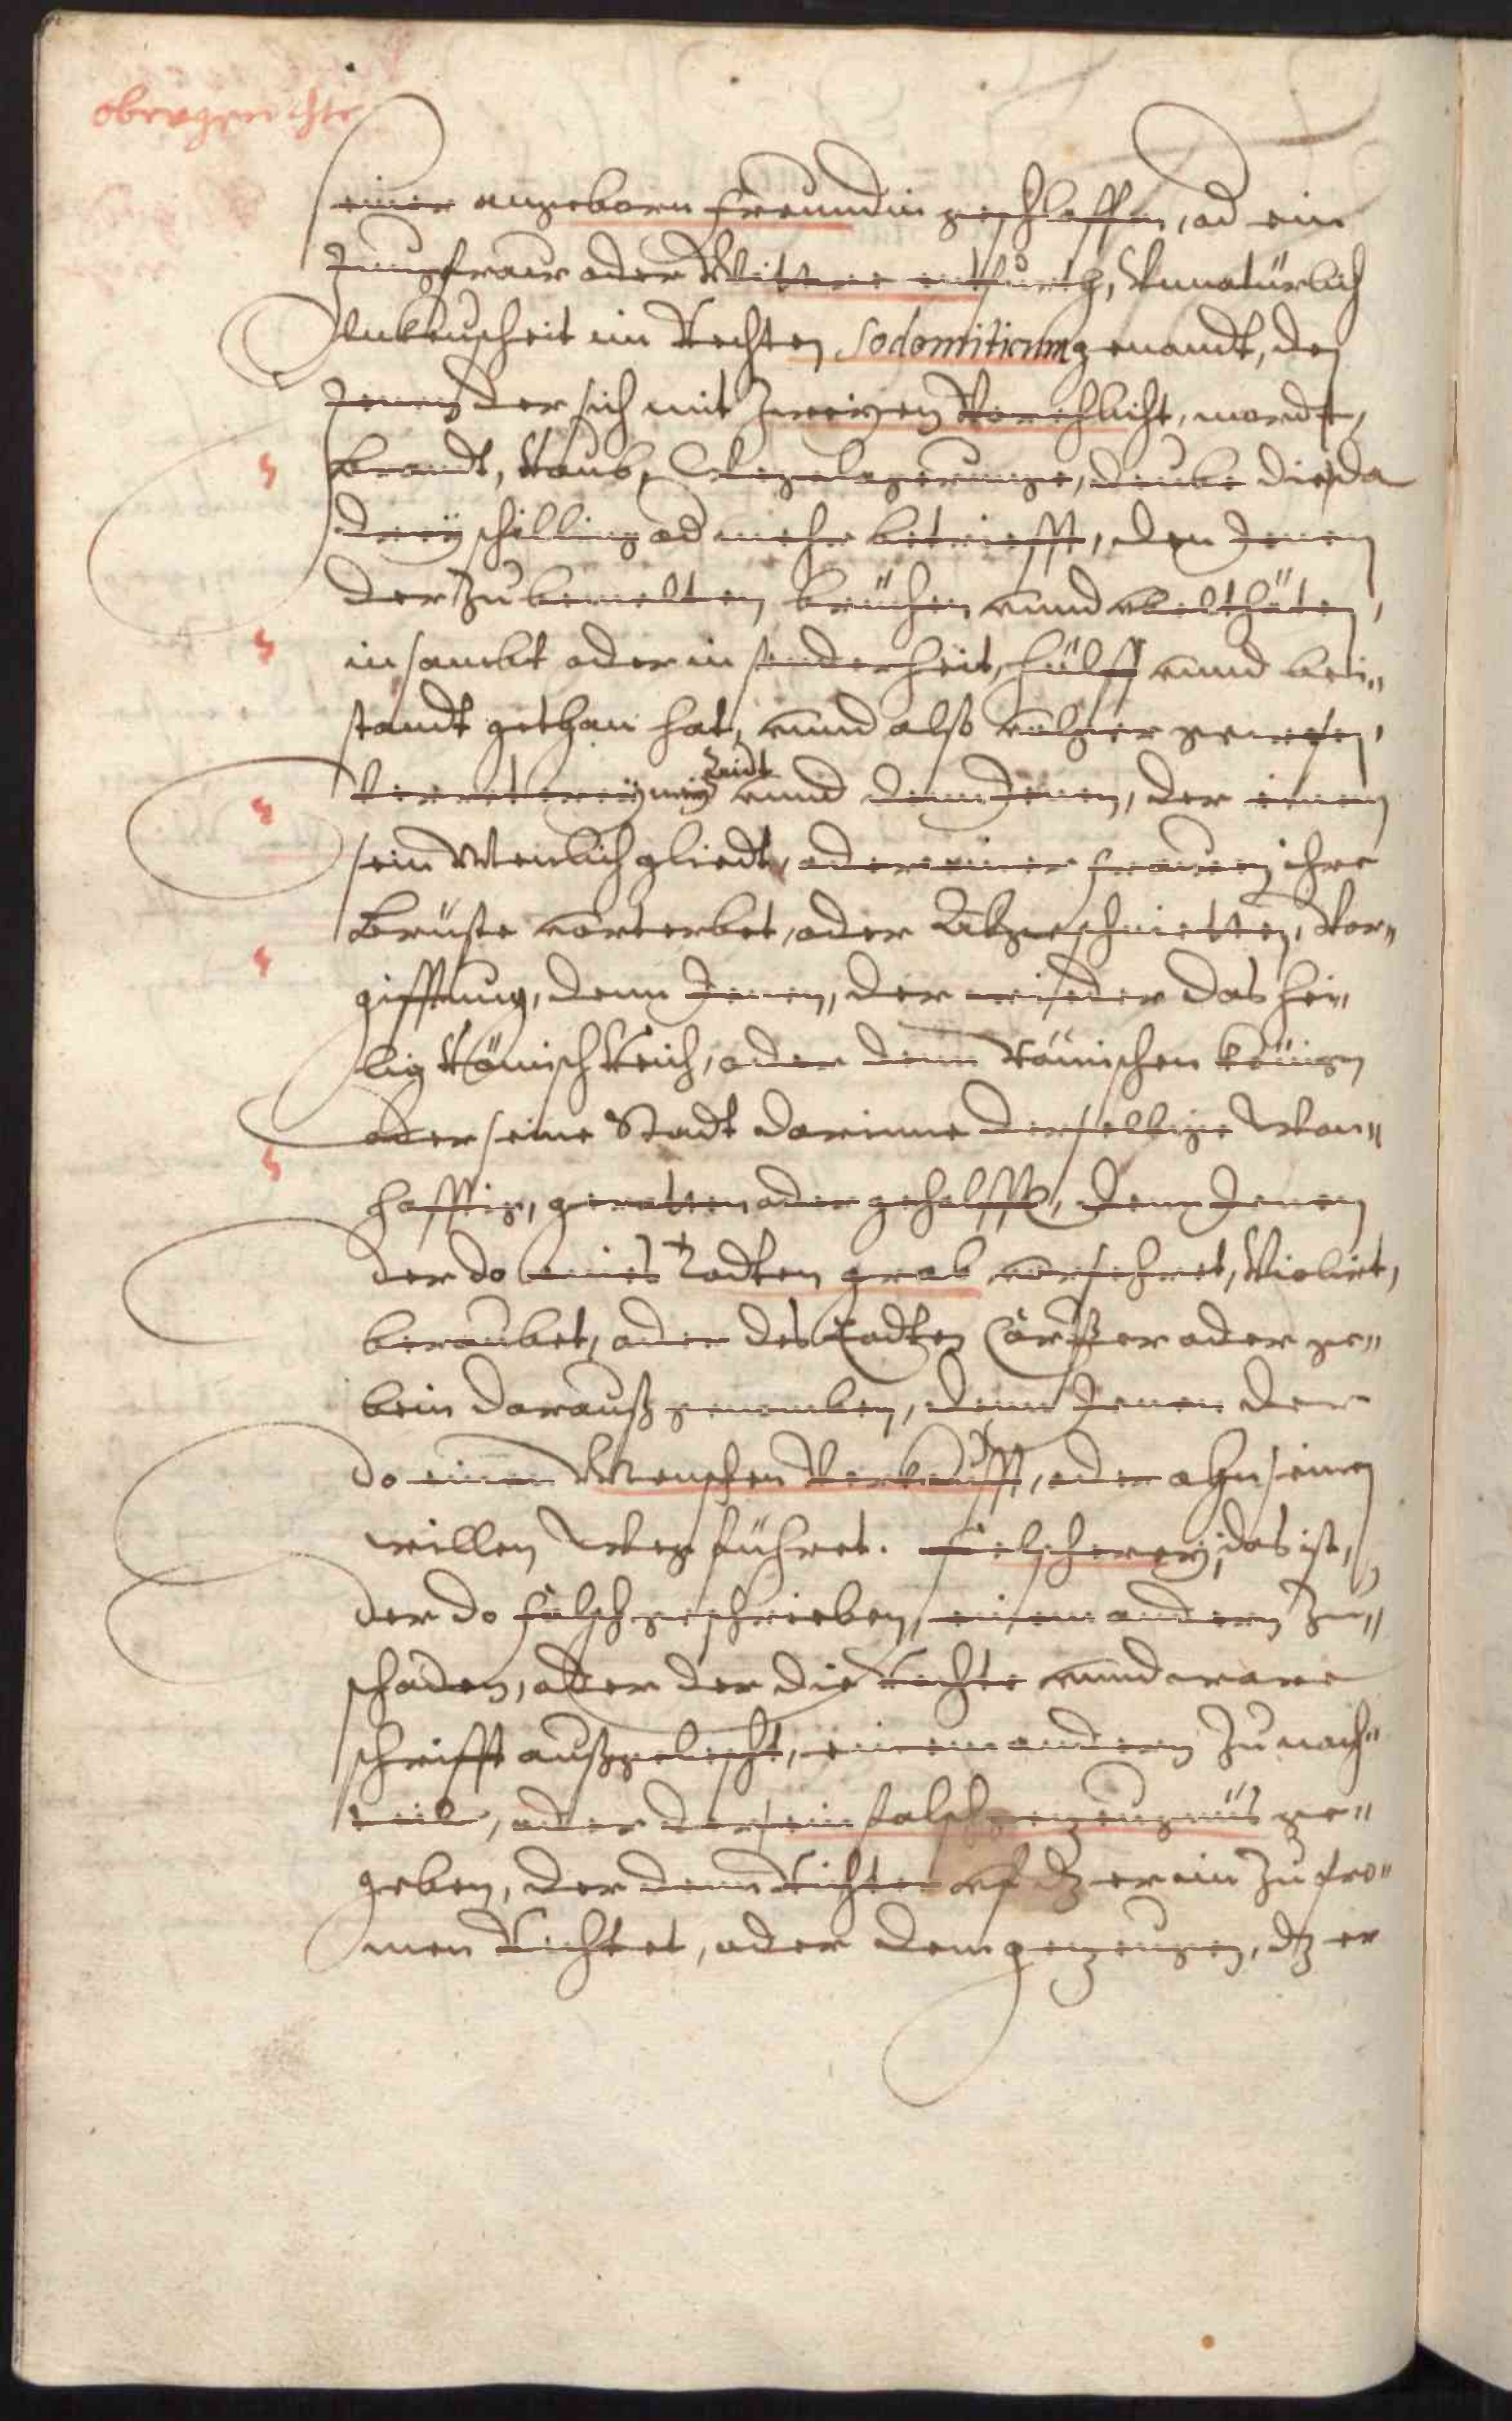 obergerichte
seiner angeborn freundin geschlaffen, od ein
Jungfraw oder Wittwe entfurth, Vnnatürlich
Vnkeuscheit im Rechten Sodomiticum genandt, den
Jenen der sich mit Zweyen Vorehlicht, mordt,
brandt, Raub, Wegelagerunge, deube die da
drey schilling od mehr betriefft, den Jenen
der Zu bemelten brüchen vnnd vbelthäten,
in sambt oder in sonderheit, hülff vnnd bei"
standt gethan hat, vnnd also volger gewesen,
Verreterey, vnnd dem Jenen, der einem
sein Menlich gliedt, oder einer frauen ihre
Brüste vorterbet, oder Abgeschnietten, Vor"
gifftung, denn Jenen, der wiseder das hei"
lig Römisch Reich, oder denn Römischen könign
oder seine Stadt darinne derselbige Wan"
hafftig, geraten oder geholffen, dem Jenen
der do eines Todten grab vorsehret, Violirt,
beraubet, oder des Todten Cörper oder ge"
bein darauß genomben, denn Jenen der
do einen Menschen Verkaufft, oder ahn seinen
willen Weg führet. felscherey, das ist,
der do falsch geschrieben, einem andern Zu"
schaden, oder der die Rechte vnnd ware
schrifft außgelescht, einem andern Zu nach"
teil, oder der sein falsch gezeugnüs ge"
geben, der dem Richter vf dz er im Zu fro"
men Richtet, oder dem gezeugen, dz er